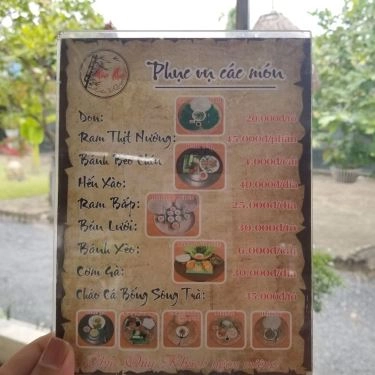 Phục vụ các món
Don: 20.000đ/tô
Ram Thịt Nướng: 45.000đ/phần
Bánh Bèo Chén 4.000đ/cái
Hến Xào: 40.000đ/dĩa
Ram Bắp: 25.000đ/dĩa
Bún Lươi: 30.000đ/tô
Bánh Xèo: 6.000đ/cái
Cơm Gà: 30.000đ/dĩa
Cháo Cá Bống Sông Trà: 35.000đ/tô